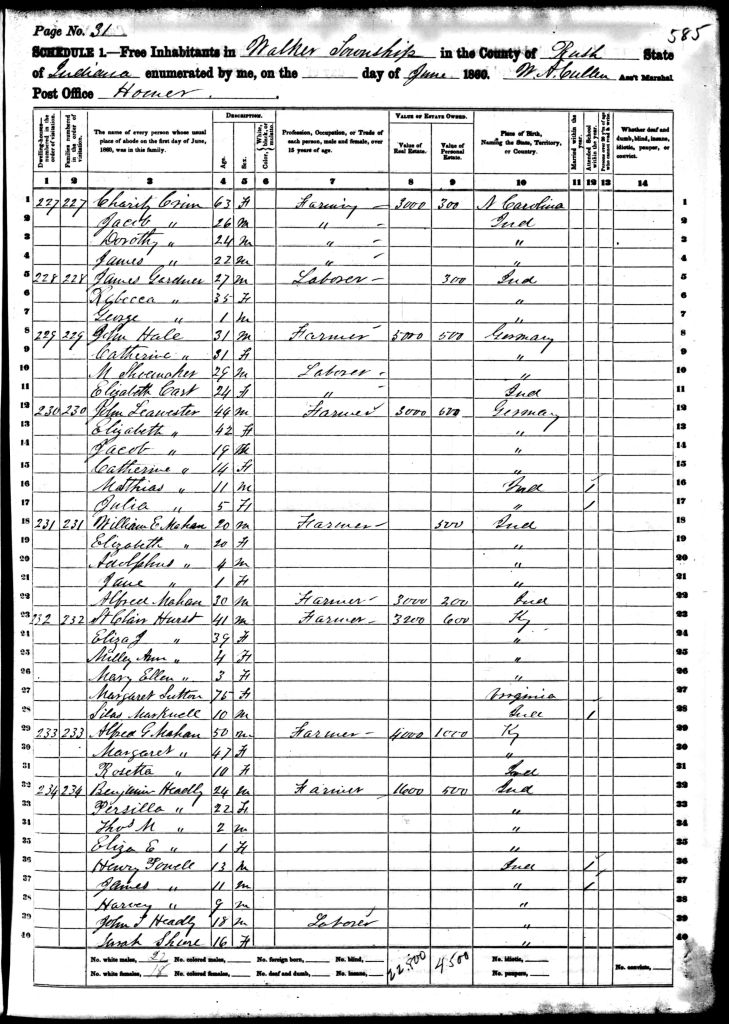 Page No. 31
585
SCHEDULE 1.—Free Inhabitants in Walker Township in the County of Rush State
of Indiana enumerated by me, on the day of June 1860. W. A. Cullen Ass't Marshal
Post Office Homer
Dwelling-houses—numbered in the order of visitation.
Families numbered in the order of visitation.
The name of every person whose usual place of abode on the first day of June, 1860, was in this family.
DESCRIPTION.
Age.
Sex.
Color, White, black, or mulatto.
Profession, Occupation, or Trade of each person, male and female, over 15 years of age.
VALUE OF ESTATE OWNED.
Value of Real Estate.
Value of Personal Estate.
Place of Birth, Naming the State, Territory, or Country.
Married within the year.
Attended School within the year.
Whether deaf and dumb, blind, insane, idiotic, pauper, or convict.
1 2 3 4 5 6 7 8 9 10 11 12 13 14
1 227 227 Charity Crim 63 F Farming — 3000 300 N Carolina 1
2 Jacob " 26 m " - Ind 2
3 Dorothy " 24 m " - " 3
4 James " 22 m " - " 4
5 228 228 James Gardner 27 m Laborer — 300 Ind 5
6 Rebecca " 35 F " 6
7 George " 1 m " 7
8 229 229 John Hale 31 m Farmer — 5000 500 Germany 8
9 Catherine " 31 F " 9
10 M Shoemaker 29 m Laborer - " 10
11 Elizabeth Cast 24 F " - Ind 11
12 230 230 John 46 m Farmer 3000 600 Germany 12
13 Elizabeth " 42 F " 13
14 Jacob " 19 m " 14
15 Catherine " 14 F " 15
16 Matthias " 11 m Ind 1 16
17 Julia " 5 F " 1 17
18 231 231 William E Mahan 20 m Farmer — 500 Ind 18
19 Elizabeth " 20 F " 19
20 Adolphus " 4 m " 20
21 Jane " 1 F " 21
22 Alfred Mahan 30 m Farmer — 3000 200 Ind 22
23 232 232 St Clair Hurst 41 m Farmer — 3200 600 Ky 23
24 Eliza J " 39 F " 24
25 Milley Ann " 4 F " 25
26 Mary Ellen " 3 F " 26
27 Margaret Sutton 75 F Virginia 27
28 Silas 10 m Ind 1 28
29 233 233 Alfred G. Mahan 50 m Farmer — 4000 1000 Ky 29
30 Margaret " 47 F " 30
31 Rosetta " 10 F Ind 31
32 234 234 Benjamin Headly 24 m Farmer 1600 500 Ind 32
33 Persilla " 22 F " 33
34 Thos M " 2 m " 34
35 Eliza E " 1 F " 35
36 Henry Powell 13 m Ind 1 36
37 James " 11 m " 1 37
38 Harvey " 9 m " 38
39 John T Headly 18 m Laborer " 39
40 Sarah 16 F " 40
No. white males, 22 No. colored males, No. foreign born, No. blind, 22.800 4500 No. idiotic, No. convicts,
No. white females, 18 No. colored females, No. deaf and dumb, No. insane, No. paupers,